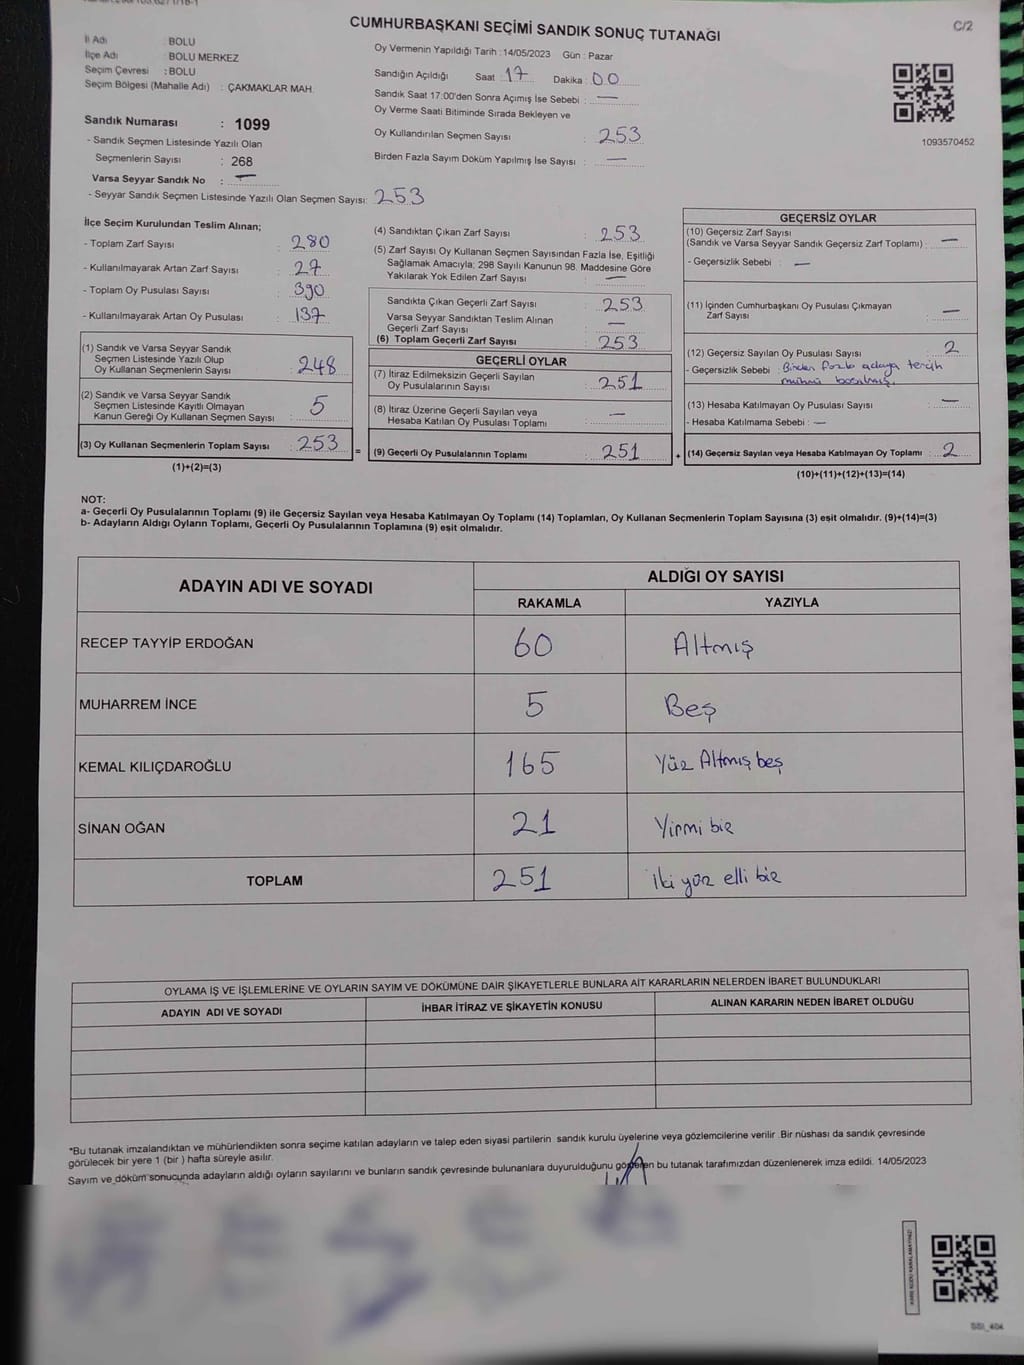 CUMHURBAŞKANI SEÇİMİ SANDIK SONUÇ TUTANAĞI
C/2
İl Adı : BOLU
İlçe Adı : BOLU MERKEZ
Seçim Çevresi : BOLU
Seçim Bölgesi (Mahalle Adı) : ÇAKMAKLAR MAH.
Oy Vermenin Yapıldığı Tarih : 14/05/2023 Gün : Pazar
Sandığın Açıldığı Saat 17 Dakika : 00
Sandık Saat 17:00'den Sonra Açımış İse Sebebi : —
Oy Verme Saati Bitiminde Sırada Bekleyen ve
Oy Kullandırılan Seçmen Sayısı : 253
Birden Fazla Sayım Döküm Yapılmış İse Sayısı : —
1093570452
Sandık Numarası : 1099
- Sandık Seçmen Listesinde Yazılı Olan
Seçmenlerin Sayısı : 268
Varsa Seyyar Sandık No : —
- Seyyar Sandık Seçmen Listesinde Yazılı Olan Seçmen Sayısı: 253
İlçe Seçim Kurulundan Teslim Alınan;
- Toplam Zarf Sayısı : 280
- Kullanılmayarak Artan Zarf Sayısı : 27
- Toplam Oy Pusulası Sayısı : 390
- Kullanılmayarak Artan Oy Pusulası : 137
(1) Sandık ve Varsa Seyyar Sandık
Seçmen Listesinde Yazılı Olup
Oy Kullanan Seçmenlerin Sayısı : 248
(2) Sandık ve Varsa Seyyar Sandık
Seçmen Listesinde Kayıtlı Olmayan
Kanun Gereği Oy Kullanan Seçmen Sayısı : 5
(3) Oy Kullanan Seçmenlerin Toplam Sayısı : 253
(1)+(2)=(3)
(4) Sandıktan Çıkan Zarf Sayısı : 253
(5) Zarf Sayısı Oy Kullanan Seçmen Sayısından Fazla İse, Eşitliği
Sağlamak Amacıyla; 298 Sayılı Kanunun 98. Maddesine Göre
Yakılarak Yok Edilen Zarf Sayısı : —
Sandıkta Çıkan Geçerli Zarf Sayısı : 253
Varsa Seyyar Sandıktan Teslim Alınan
Geçerli Zarf Sayısı : —
(6) Toplam Geçerli Zarf Sayısı : 253
GEÇERLİ OYLAR
(7) İtiraz Edilmeksizin Geçerli Sayılan
Oy Pusulalarının Sayısı : 251
(8) İtiraz Üzerine Geçerli Sayılan veya
Hesaba Katılan Oy Pusulası Toplamı : —
= (9) Geçerli Oy Pusulalarının Toplamı : 251
GEÇERSİZ OYLAR
(10) Geçersiz Zarf Sayısı
(Sandık ve Varsa Seyyar Sandık Geçersiz Zarf Toplamı) : —
- Geçersizlik Sebebi : —
(11) İçinden Cumhurbaşkanı Oy Pusulası Çıkmayan
Zarf Sayısı : —
(12) Geçersiz Sayılan Oy Pusulası Sayısı : 2
- Geçersizlik Sebebi : Birden fazla adaya tercih
mührü basılmış.
(13) Hesaba Katılmayan Oy Pusulası Sayısı : —
- Hesaba Katılmama Sebebi : —
+ (14) Geçersiz Sayılan veya Hesaba Katılmayan Oy Toplamı : 2
(10)+(11)+(12)+(13)=(14)
NOT:
a- Geçerli Oy Pusulalarının Toplamı (9) ile Geçersiz Sayılan veya Hesaba Katılmayan Oy Toplamı (14) Toplamları, Oy Kullanan Seçmenlerin Toplam Sayısına (3) eşit olmalıdır. (9)+(14)=(3)
b- Adayların Aldığı Oyların Toplamı, Geçerli Oy Pusulalarının Toplamına (9) eşit olmalıdır.
ADAYIN ADI VE SOYADI ALDIĞI OY SAYISI
RAKAMLA YAZIYLA
RECEP TAYYİP ERDOĞAN 60 Altmış
MUHARREM İNCE 5 Beş
KEMAL KILIÇDAROĞLU 165 Yüz Altmış beş
SİNAN OĞAN 21 Yirmi bir
TOPLAM 251 İki yüz elli bir
OYLAMA İŞ VE İŞLEMLERİNE VE OYLARIN SAYIM VE DÖKÜMÜNE DAİR ŞİKAYETLERLE BUNLARA AİT KARARLARIN NELERDEN İBARET BULUNDUKLARI
ADAYIN ADI VE SOYADI İHBAR İTİRAZ VE ŞİKAYETİN KONUSU ALINAN KARARIN NEDEN İBARET OLDUĞU
*Bu tutanak imzalandıktan ve mühürlendikten sonra seçime katılan adayların ve talep eden siyasi partilerin sandık kurulu üyelerine veya gözlemcilerine verilir .Bir nüshası da sandık çevresinde
görülecek bir yere 1 (bir ) hafta süreyle asılır.
Sayım ve döküm sonucunda adayların aldığı oyların sayılarını ve bunların sandık çevresinde bulunanlara duyurulduğunu gösteren bu tutanak tarafımızdan düzenlenerek imza edildi. 14/05/2023